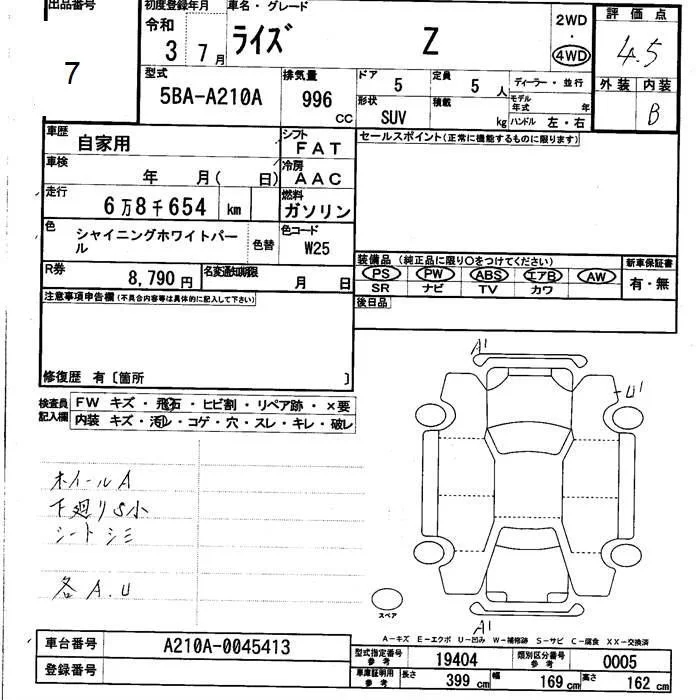 出品番号 初度登録年月 車名・グレード 2WD・4WD 評価点
7 令和 3 7月 ライズ Z 4.5
型式 5BA-A210A 排気量 996 CC ドア 5 定員 5人 ディーラー・並行 外装 内装
形状 SUV 積載 kg モデル年式 年 ハンドル 左・右 B
車歴 自家用 シフト FAT セールスポイント(正常に機能するものに限ります)
車検 年 月( 日) 冷房 AAC
走行 6万8千654 km 燃料 ガソリン
色 シャイニングホワイトパール 色替 色コード W25
装備品 (純正品に限り○をつけてください) 新車保証書
PS PW ABS エアB AW 有・無
SR ナビ TV カワ
R券 8,790円 名変通知期限 月 日
後日品
注意事項申告欄(不具合内容等は具体的に記入して下さい)
修復歴 有〔箇所 〕
検査員記入欄 FW キズ・飛石・ヒビ割・リペア跡・×要
内装 キズ・汚れ・コゲ・穴・スレ・キレ・破レ
ホイールA
下廻りS小
シートシミ
各A.U
A1
U1
スペア
A1
A-キズ E-エクボ U-凹み W-補修跡 S-サビ C-腐食 XX-交換済
車台番号 A210A-0045413
登録番号
型式指定番号 参考 19404 類別区分番号 参考 0005
車庫証明用 参考 長さ 399 cm 幅 169 cm 高さ 162 cm